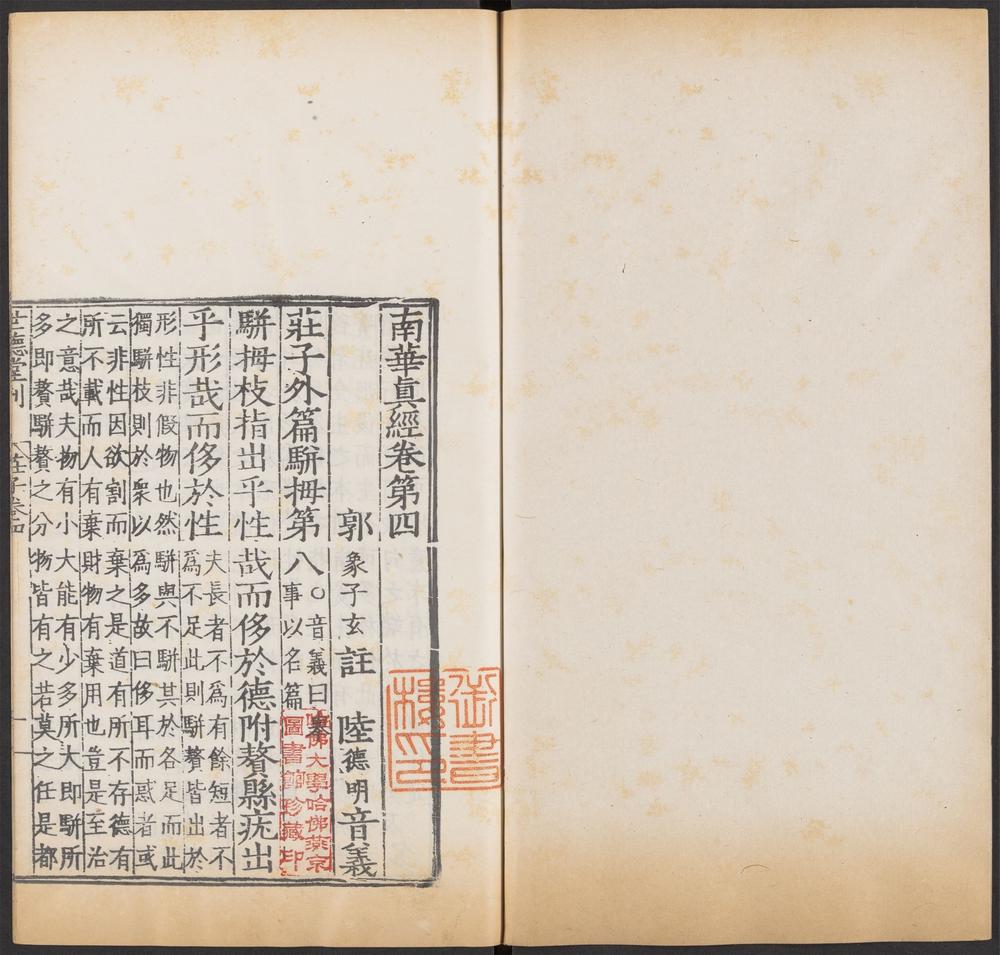 南華眞經卷第四
郭象子玄註 陸德明音義
莊子外篇駢拇第八○音義曰舉
事以名篇
駢拇枝指出乎性哉而侈於德附贅縣疣出
乎形哉而侈於性夫長者不爲有餘短者不
爲不足此則駢贅皆出於
形性非假物也然駢與不駢其於各足而此
獨駢枝則於衆以爲多故曰侈耳而惑者或
云非性因欲割而棄之是道有所不存德有
所不載而人有棄財物有棄用也豈是至治
之意哉夫物有小大能有少多所大即駢所
多即贅駢贅之分物皆有之若莫之任是都
世德堂刊 莊子卷四 一
御書樓印
哈佛大學哈佛燕京
圖書館珍藏印